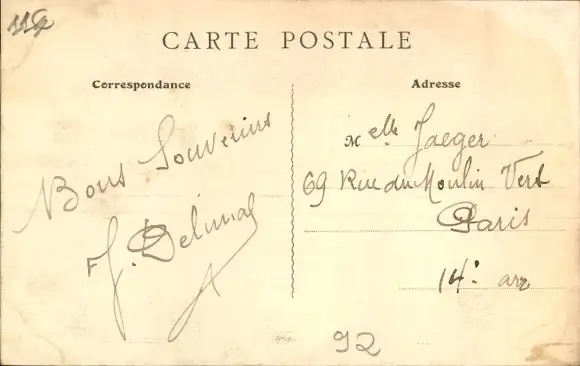 CARTE POSTALE
Correspondance
Adresse
Bons Souvenirs
Melle Jaeger
69 Rue du Moulin Vert
Paris
14e arr
92